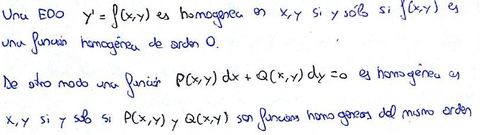 Una EDO y' = f(x,y) es homogenea en x,y si y sólo si f(x,y) es
una función homogénea de orden 0.
De otro modo una función P(x,y) dx + Q(x,y) dy = 0 es homogénea en
x,y si y sólo si P(x,y) y Q(x,y) son funciones homogéneas del mismo orden